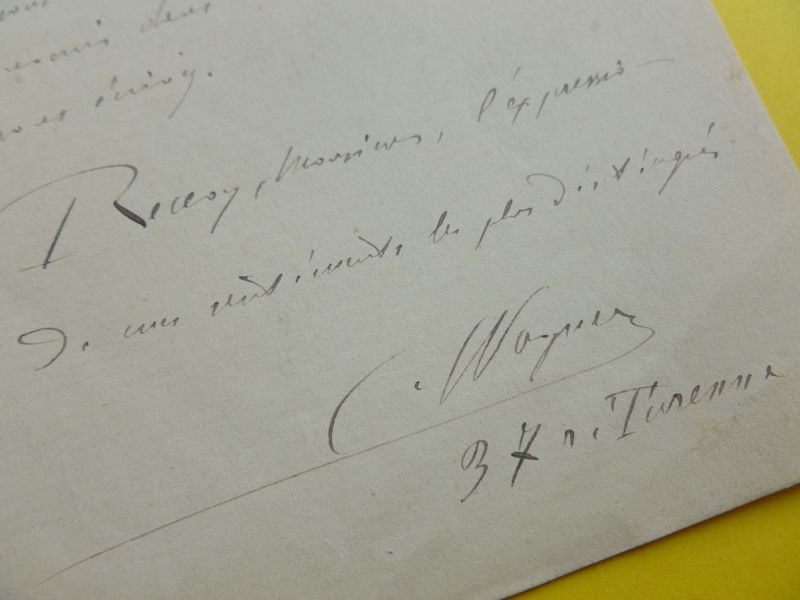 vous
dans
vous
Recevez, Monsieur, l'expression
de mes sentiments les plus distingués.
C. Wagner
37 r. Turenne